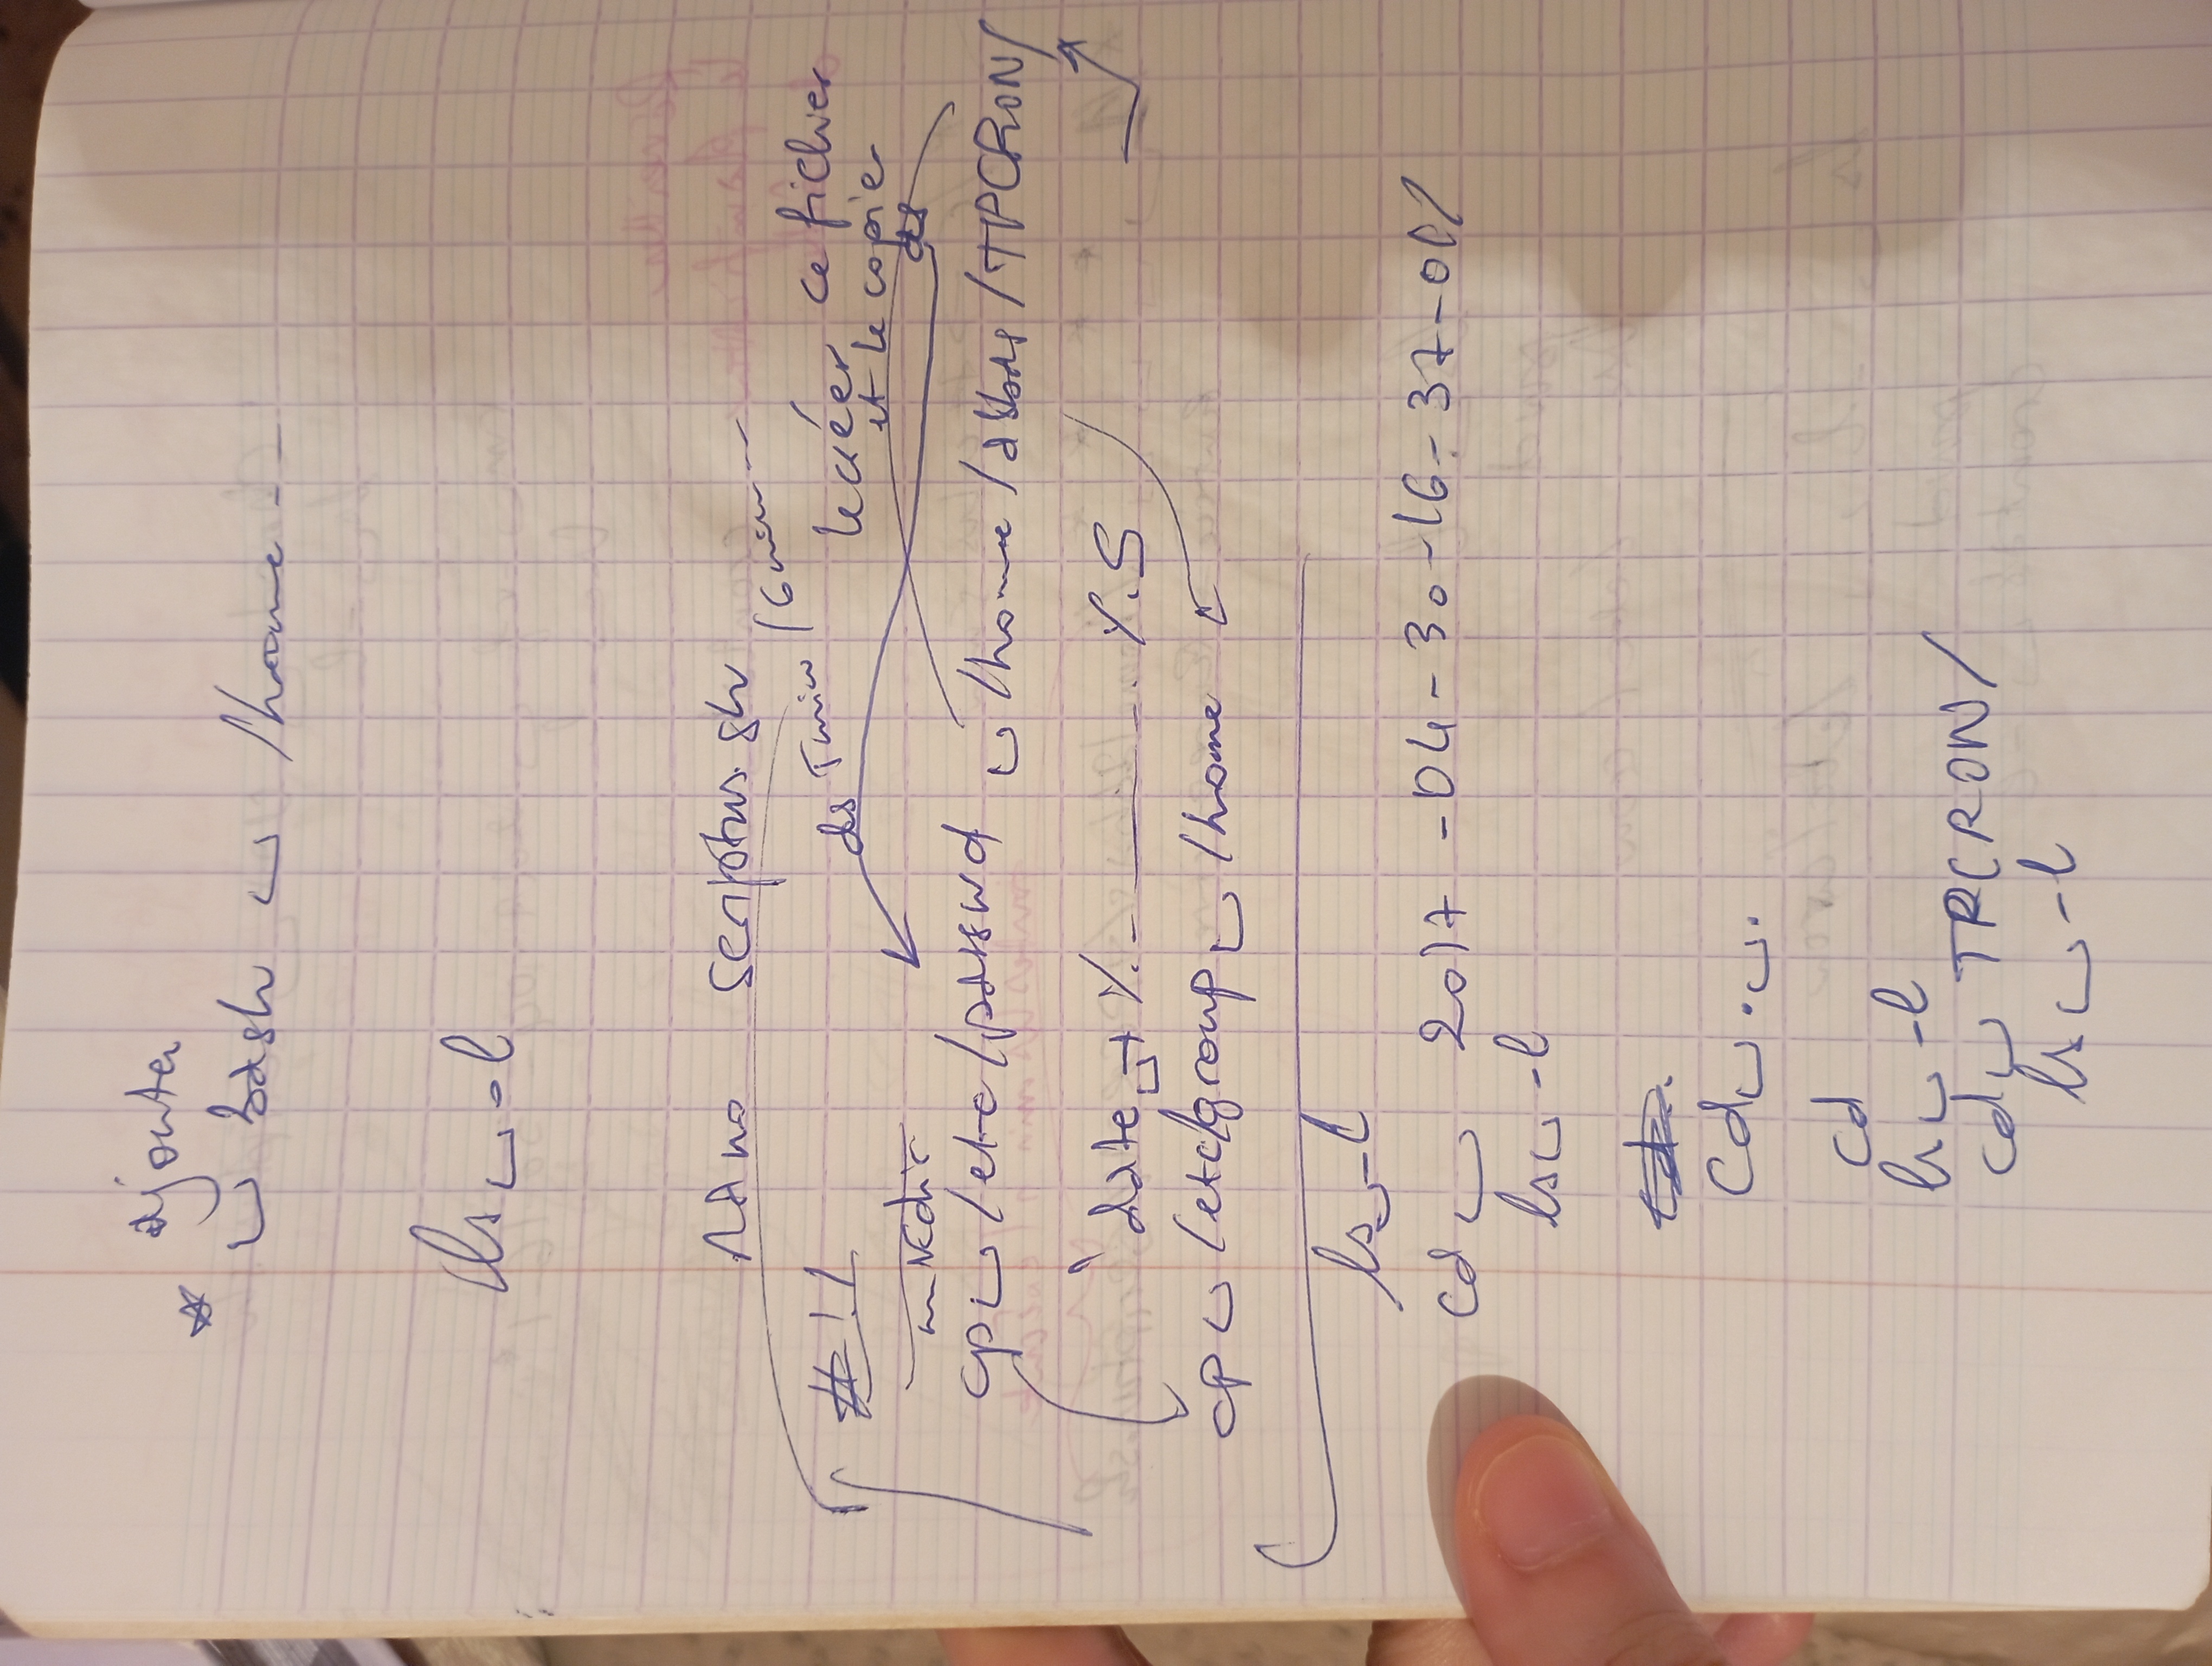 * ajouter
␣ bash ␣ /home - -
ls ␣ -l
nano scriptus.sh
ds 16min
#!
le créer ce fichier
et le copier
mkdir
ds
cp ␣ /etc/passwd ␣ /home/abbas/TPCRON/
`date ␣ + %- ____ -. %S
cp ␣ /etc/group ␣ /home
ls ␣ -l
cd ␣ 2017-04-30-16-37-01/
ls ␣ -l
cd ␣ . ␣ .
cd
ls ␣ -l
cd ␣ TPCRON/
ls ␣ -l